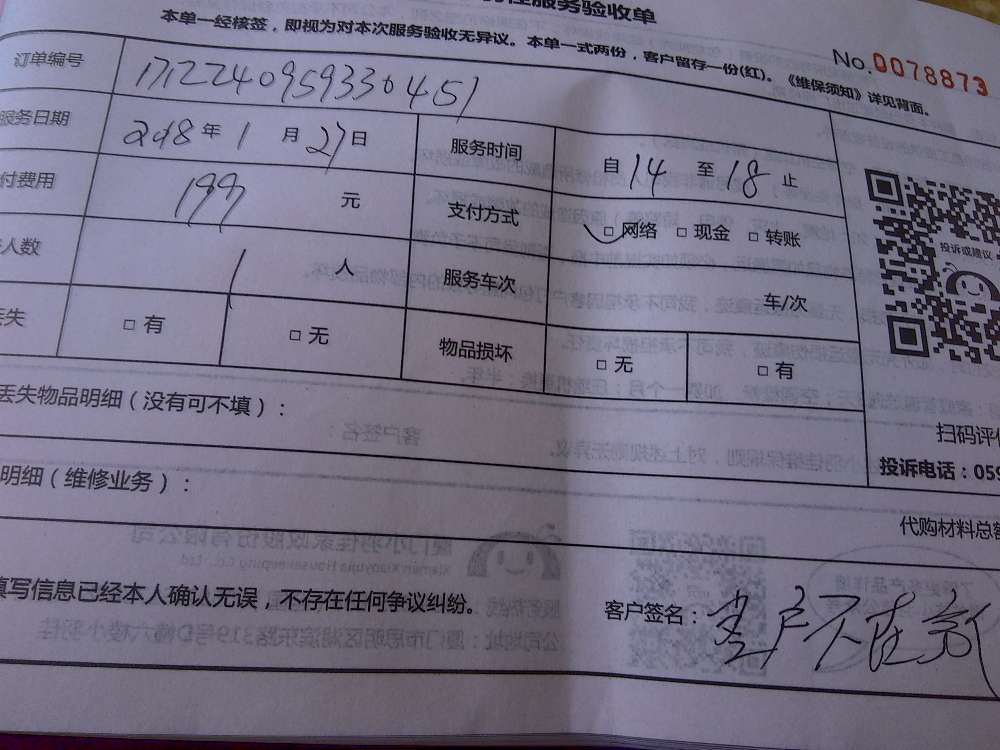 服务验收单
本单一经核签，即视为对本次服务验收无异议。本单一式两份，客户留存一份(红)。《维保须知》详见背面。
No.0078873
订单编号 1712240959330451
服务日期 2018年1月27日 服务时间 自14至18止
付费用 199 元 支付方式 □网络 □现金 □转账
人数 1 人 服务车次 车/次
丢失 □有 □无 物品损坏 □无 □有
投诉或建议
丢失物品明细（没有可不填）：
扫码评
明细（维修业务）：
投诉电话：059
代购材料总
填写信息已经本人确认无误，不存在任何争议纠纷。
客户签名：客户不在家